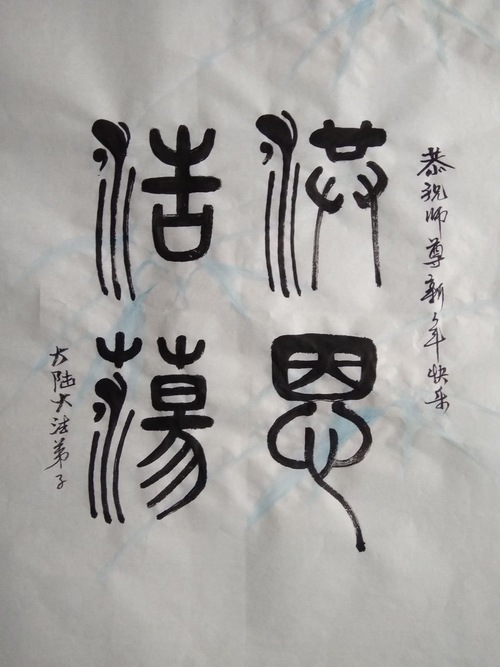 恭祝师尊新年快乐
洪恩
浩荡
大陆大法弟子